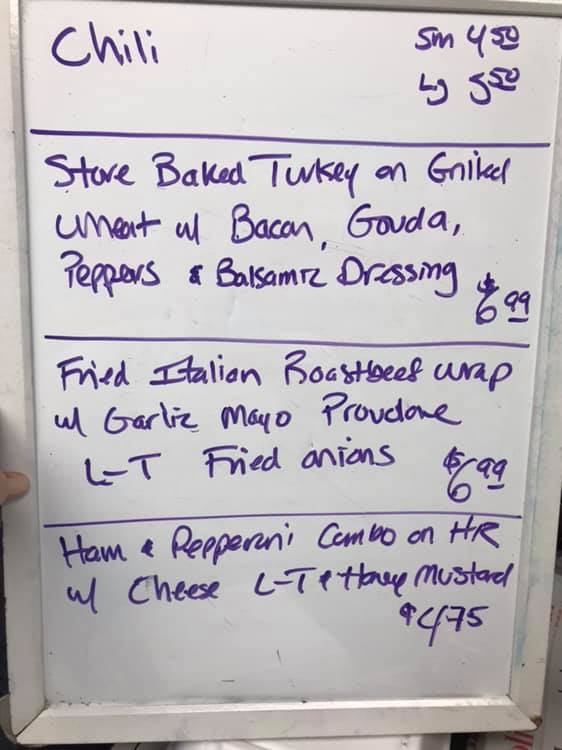 Chili Sm 4.50
Lg 5.50
Store Baked Turkey on Grilled
Wheat w/ Bacon, Gouda,
Peppers & Balsamic Dressing
$6.99
Fried Italian Roastbeef wrap
w/ Garlic Mayo Provolone
L-T Fried onions $6.99
Ham & Pepperoni Combo on HR
w/ Cheese L-T & Honey Mustard
$4.75